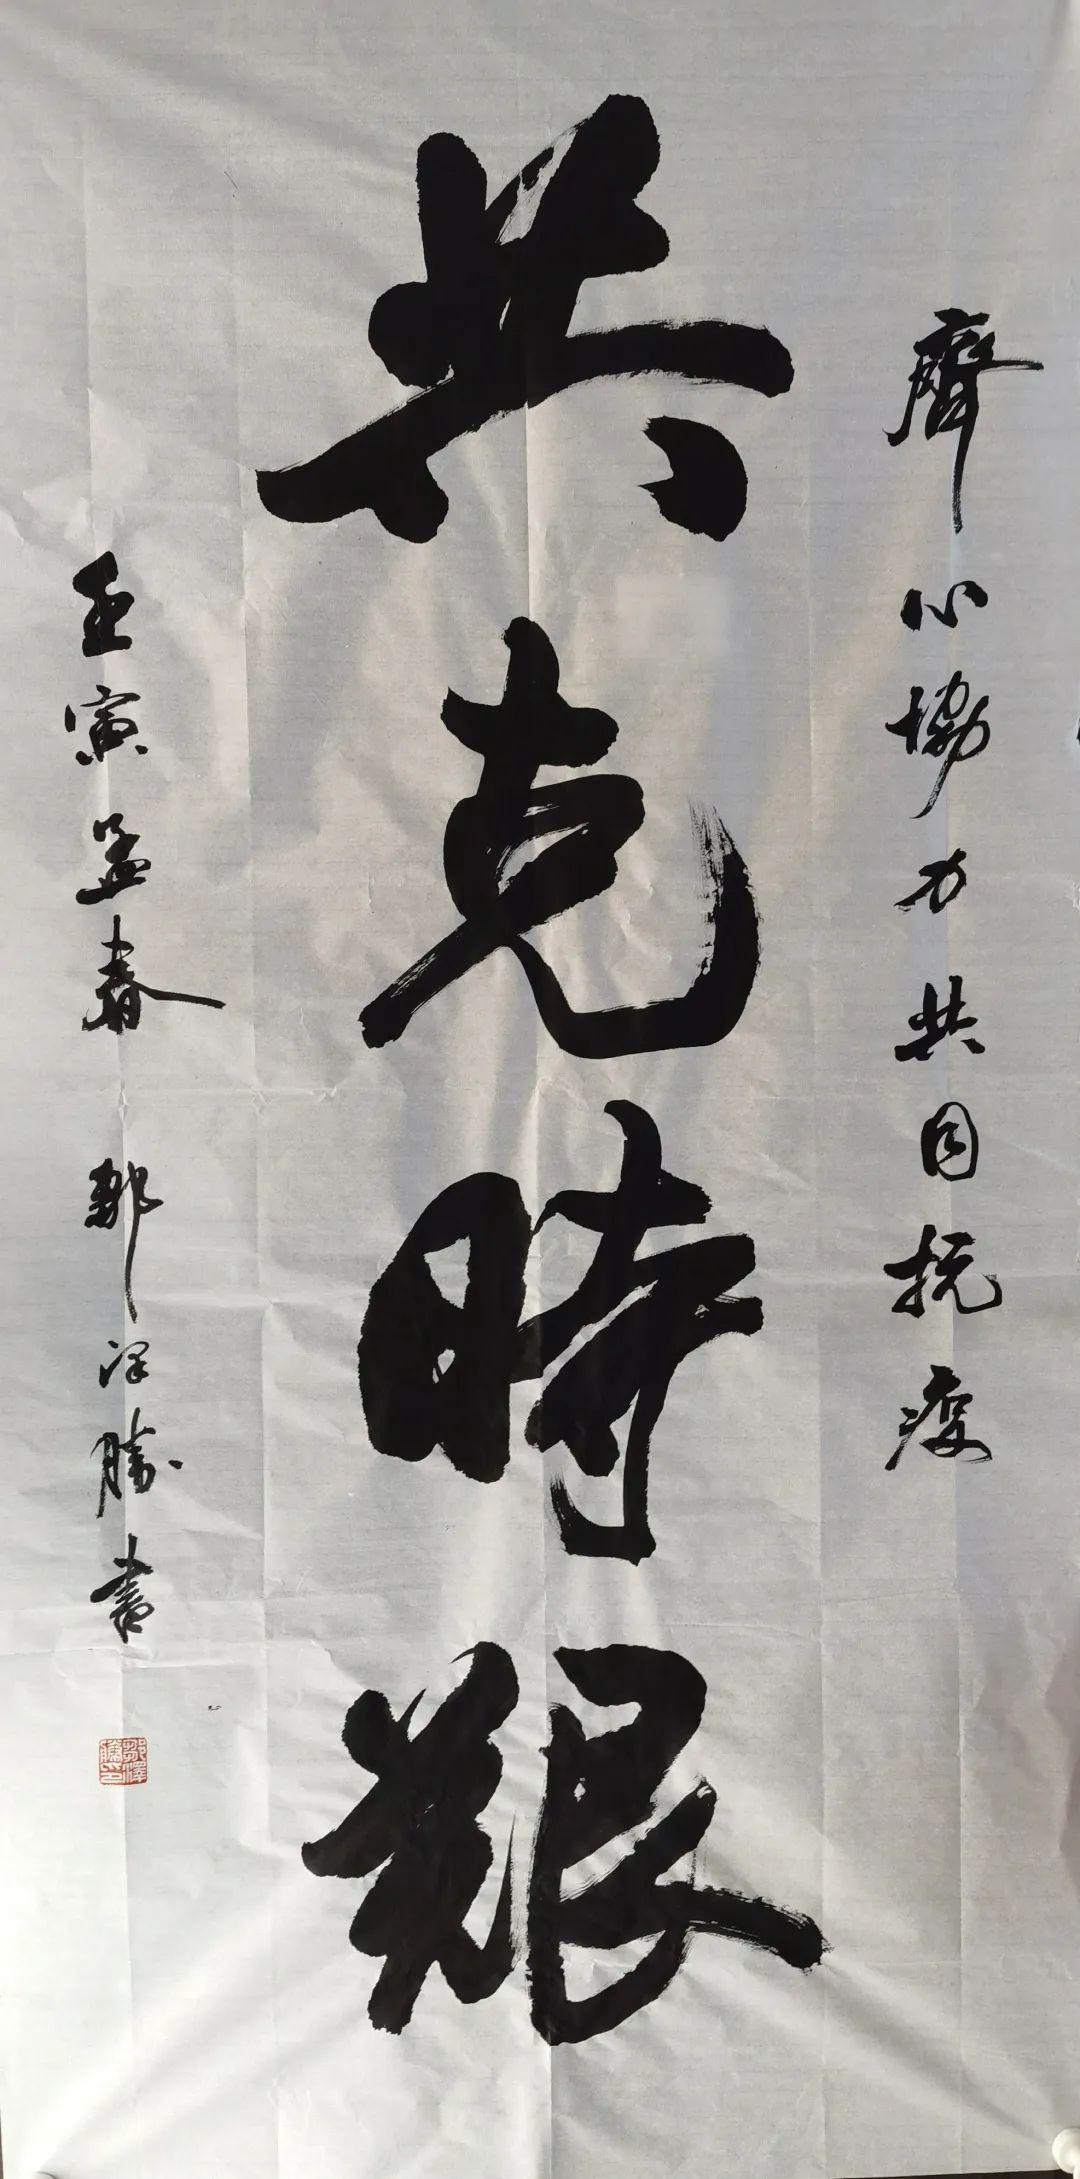 齊心協力共同抗疫
共克時艱
壬寅孟春 鄒泽勝書